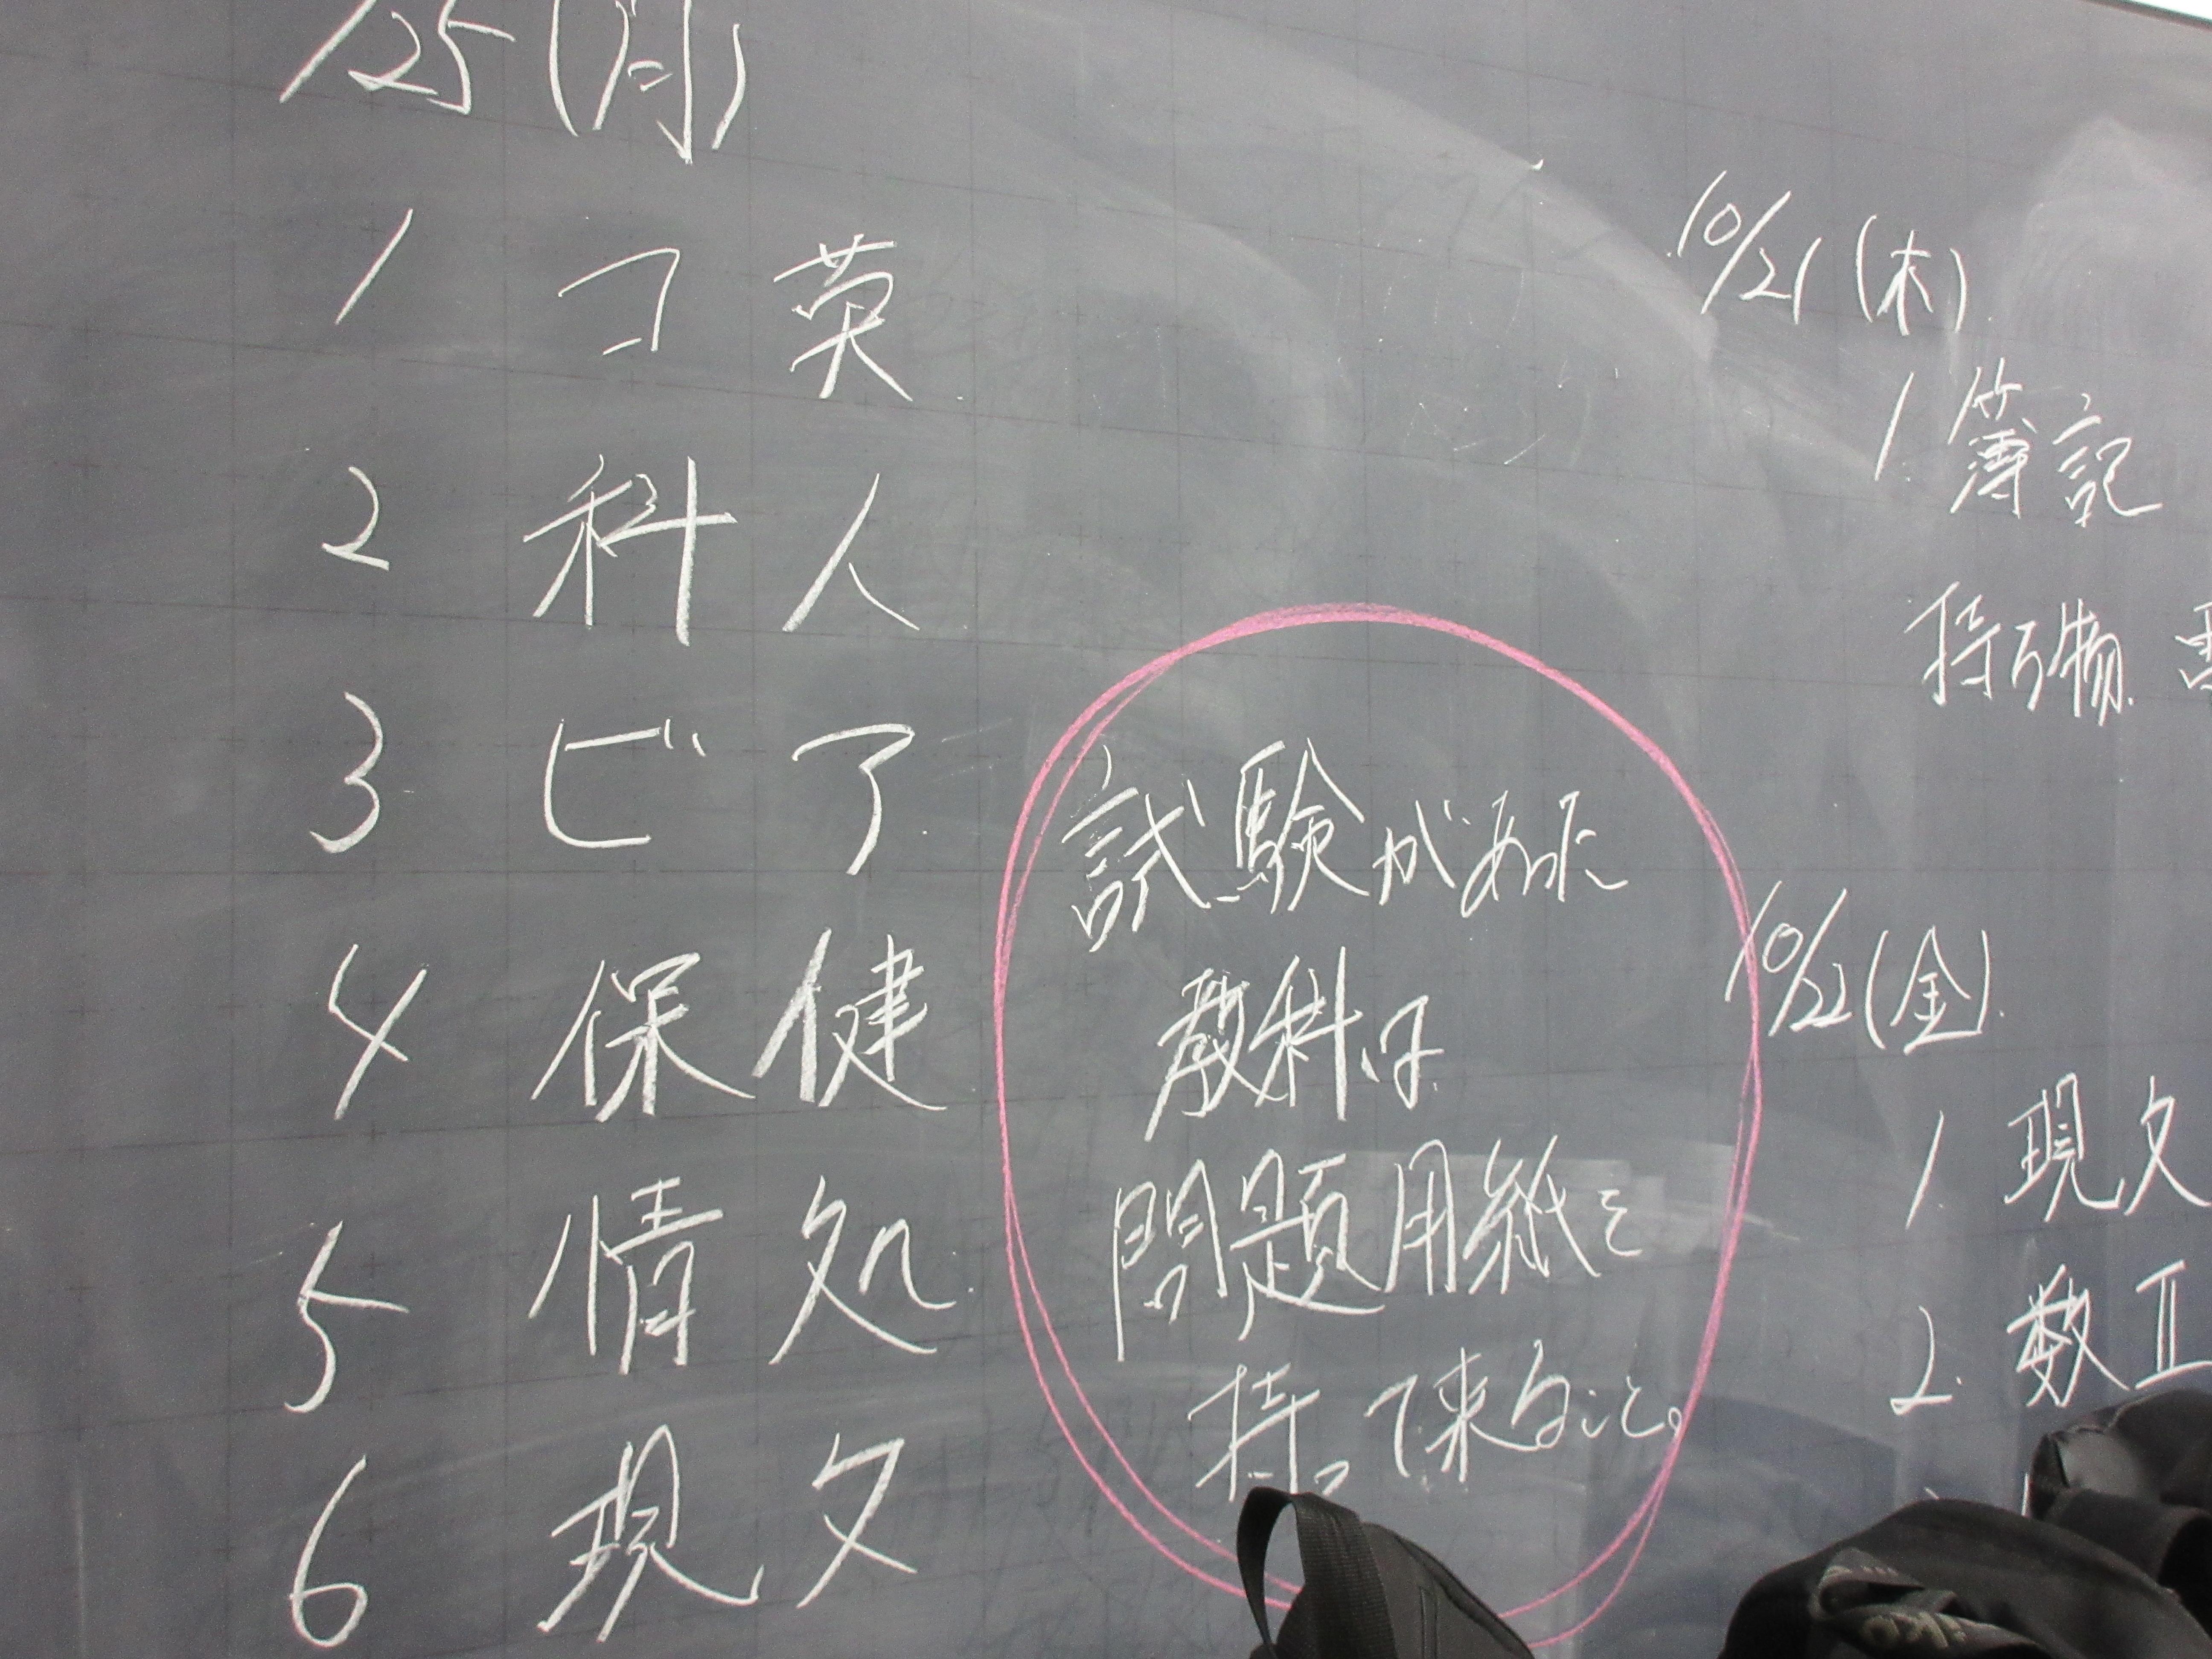 /25(月)
1 コ英
2 科人
3 ビア
4 保健
5 情処
6 現文
試験があった
教科は
問題用紙を
持って来ること。
10/21(木)
1. 簿記
持ち物
10/22(金)
1. 現文
2. 数Ⅱ